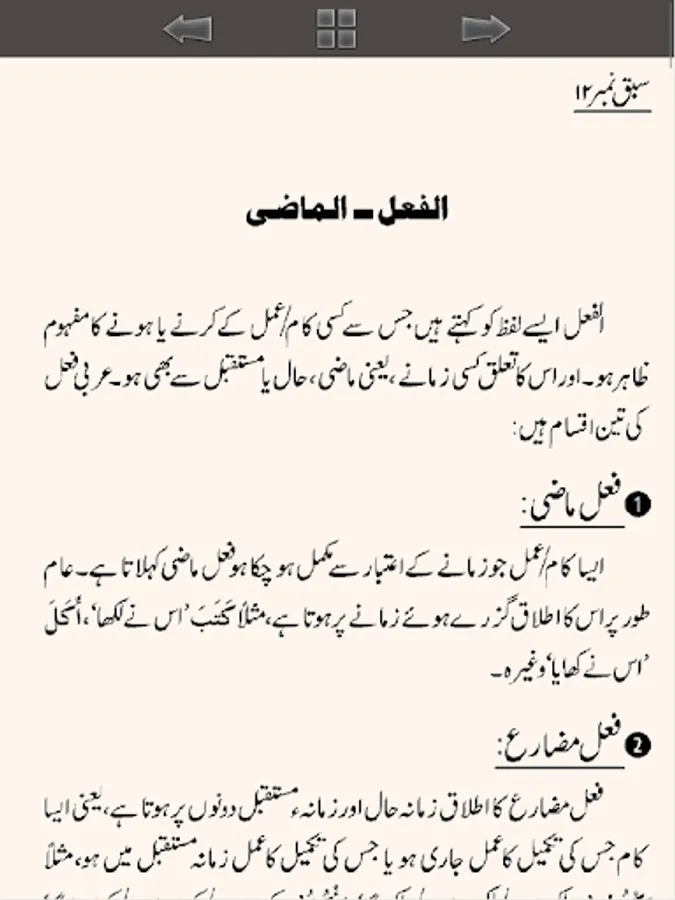 سبق نمبر ۱۲
الفعل ـ الماضی
الفعل ایسے لفظ کو کہتے ہیں جس سے کسی کام/عمل کے کرنے یا ہونے کا مفہوم
ظاہر ہو۔ اور اس کا تعلق کسی زمانے، یعنی ماضی، حال یا مستقبل سے بھی ہو۔ عربی فعل
کی تین اقسام ہیں:
❶ فعل ماضی:
ایسا کام/عمل جو زمانے کے اعتبار سے مکمل ہو چکا ہو فعل ماضی کہلاتا ہے۔ عام
طور پر اس کا اطلاق گزرے ہوئے زمانے پر ہوتا ہے، مثلاً كَتَبَ ’اس نے لکھا‘، أَكَلَ
’اس نے کھایا‘ وغیرہ۔
❷ فعل مضارع:
فعل مضارع کا اطلاق زمانہ حال اور زمانہء مستقبل دونوں پر ہوتا ہے، یعنی ایسا
کام جس کی تکمیل کا عمل جاری ہو یا جس کی تکمیل کا عمل زمانہ مستقبل میں ہو، مثلاً